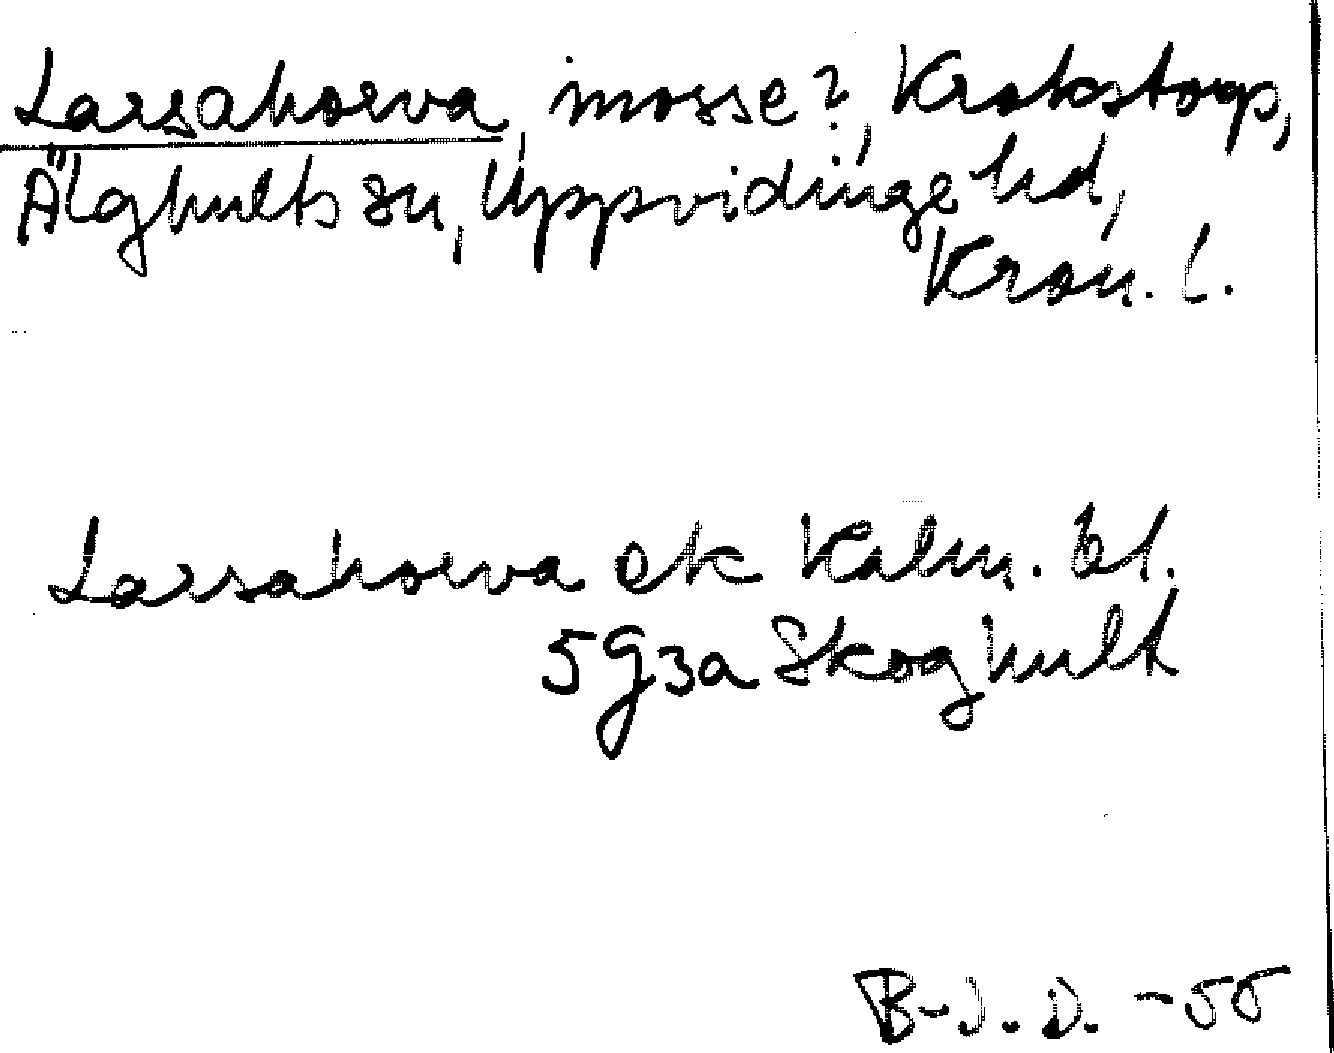 Larsahorva, mosse?, Krokstorp,
Älghults sn, Uppvidinge hd,
Kron. l.
Larsahorva ek Kalm. bl.
5G3a Skoghult
B-J.D. -55